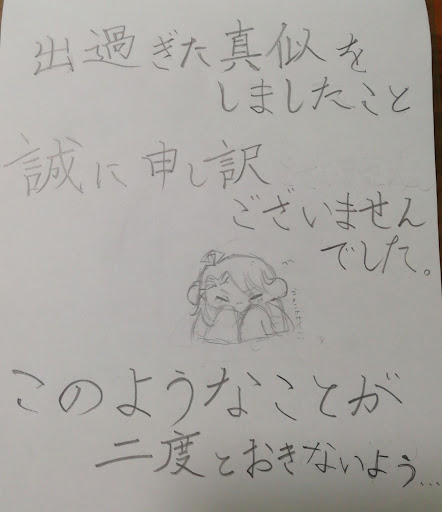 出過ぎた真似を
しましたこと
誠に申し訳
ございません
でした。
このようなことが
二度とおきないよう…